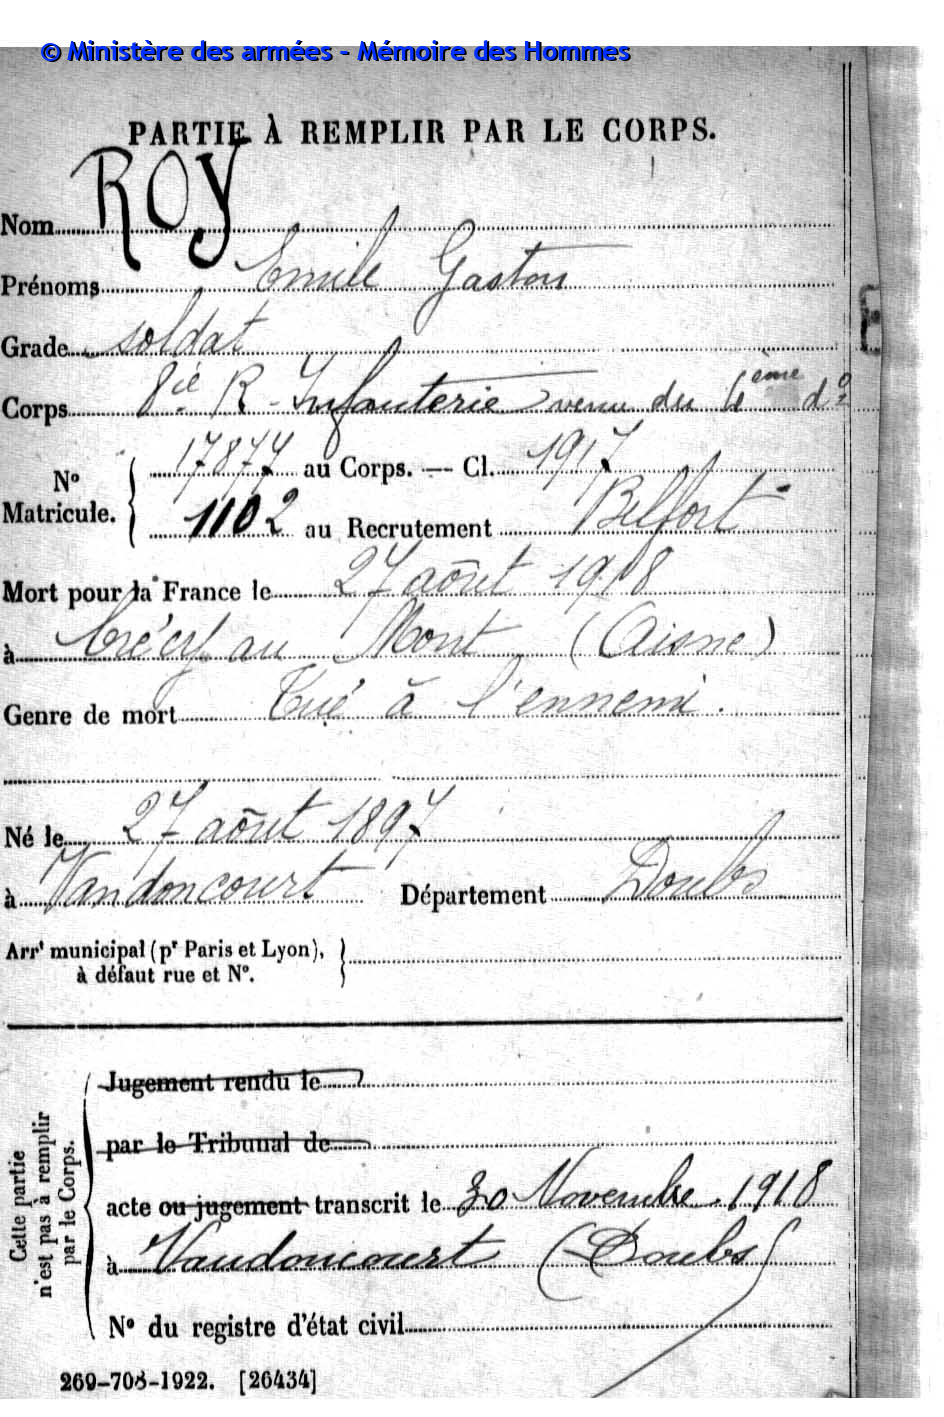 © Ministère des armées - Mémoire des Hommes
PARTIE À REMPLIR PAR LE CORPS.
Nom ROY
Prénoms Emile Gaston
Grade soldat
Corps 8ie R - Infanterie venu du 4ème do
No Matricule. 17877 au Corps. — Cl. 1917
1102 au Recrutement Belfort
Mort pour la France le 27 aôut 1918
à Crécy au Mont (Aisne)
Genre de mort Tué à l'ennemi.
Né le 27 aôut 1897
à Vandoncourt Département Doubs
Arrt municipal (pr Paris et Lyon),
à défaut rue et No.
Cette partie n'est pas à remplir par le Corps.
Jugement rendu le
par le Tribunal de
acte ou jugement transcrit le 30 Novembre 1918
à Vandoncourt (Doubs)
No du registre d'état civil
269-708-1922. [26434]